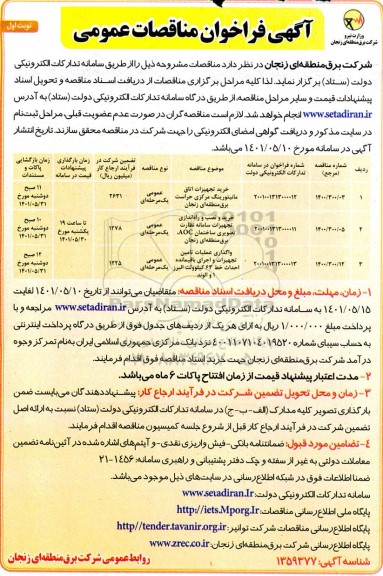 نوبت اول
آگهی فراخوان مناقصات عمومی
وزارت نیرو
شرکت برق منطقه‌ای زنجان
شرکت برق منطقه‌ای زنجان در نظر دارد مناقصات مشروحه ذیل را از طریق سامانه تدارکات الکترونیکی
دولت (ستاد) برگزار نماید. لذا کلیه مراحل برگزاری مناقصات از دریافت اسناد مناقصه و تحویل اسناد
پیشنهادات قیمت و سایر مراحل مناقصه، از طریق درگاه سامانه تدارکات الکترونیکی دولت (ستاد) به آدرس
www.setadiran.ir انجام خواهد شد. لازم است مناقصه گران در صورت عدم عضویت قبلی، مراحل ثبت‌نام
در سایت مذکور و دریافت گواهی امضای الکترونیکی را جهت شرکت در مناقصه محقق سازند. تاریخ انتشار
آگهی در سامانه مورخ ۱۴۰۱/۰۵/۱۰ می‌باشد.
ردیف | شماره مناقصه (مرجع) | شماره فراخوان در سامانه تدارکات الکترونیکی دولت | موضوع مناقصه | نوع مناقصه | تضمین شرکت در فرآیند ارجاع کار (میلیون ریال) | زمان بارگذاری پیشنهادات قیمت در سامانه | زمان بازگشایی پاکات و مستندات
۱ | ۱۴۰۰/۳۰۰/۰۳ | خرید تجهیزات اتاق مانیتورینگ مرکزی حراست برق منطقه‌ای زنجان | عمومی یک‌مرحله‌ای | ۲۶۳۱ | تا ساعت ۱۹ یکشنبه مورخ ۱۴۰۱/۰۵/۳۰ | ۱۱ صبح دوشنبه مورخ ۱۴۰۱/۰۵/۳۱
۲ | ۱۴۰۰/۳۰۰/۰۵ | خرید و نصب و راه‌اندازی تجهیزات سامانه نظارت تصویری ساختمان AOC برق منطقه‌ای زنجان | عمومی یک‌مرحله‌ای | ۱۳۷۸ | ۱۰ صبح دوشنبه مورخ ۱۴۰۱/۰۵/۳۱
۳ | ۱۴۰۰/۳۰۰/۱۴ | واگذاری عملیات تامین تجهیزات و اجرای باقیمانده احداث خط ۶۳ کیلوولت البرز ۱ و الوند | عمومی یک‌مرحله‌ای | ۱۲۲۵ | ۱۲ صبح دوشنبه مورخ ۱۴۰۱/۰۵/۳۱
۱- زمان، مهلت، مبلغ و محل دریافت اسناد مناقصه: متقاضیان می‌توانند از تاریخ ۱۴۰۱/۰۵/۱۰ لغایت
۱۴۰۱/۰۵/۱۵ به سامانه تدارکات الکترونیکی دولت (ستاد) به آدرس www.setadiran.ir مراجعه و با
پرداخت مبلغ ۱/۰۰۰/۰۰۰ ریال به ازای هر یک از ردیف‌های جدول فوق از طریق درگاه پرداخت اینترنتی
به حساب سیبای شماره ۴۰۰۱۱۰۷۱۰۴۰۱۹۵۲۰ نزد بانک مرکزی جمهوری اسلامی ایران به‌نام تمرکز وجوه
درآمد شرکت برق منطقه‌ای زنجان جهت خرید اسناد مناقصه فوق اقدام فرمایند.
۲- مدت اعتبار پیشنهاد قیمت از زمان افتتاح پاکات ۶ ماه می‌باشد.
۳- زمان و محل تحویل تضمین شرکت در فرآیند ارجاع کار: پیشنهاددهندگان می‌بایست ضمن
بارگذاری تصویر کلیه مدارک (الف-ب-ج) در سامانه تدارکات الکترونیکی دولت (ستاد) نسبت به ارائه اصل
تضمین شرکت در فرآیند ارجاع کار قبل از شروع جلسه کمیسیون مناقصه اقدام فرمایند.
۴- تضامین مورد قبول: ضمانتنامه بانکی-فیش واریزی نقدی- و آیتم‌های اشاره شده در آئین‌نامه تضمین
معاملات دولتی به غیر از سفته و چک دفتر پشتیبانی و راهبری سامانه: ۱۴۵۶-۰۲۱
ضمنا اطلاعات فوق در شبکه اطلاع‌رسانی در سایت‌های ذیل موجود می‌باشد.
سامانه تدارکات الکترونیکی دولت: www.setadiran.Ir
پایگاه ملی اطلاع‌رسانی مناقصات: http://iets.Mporg.Ir
پایگاه اطلاع‌رسانی مناقصات شرکت توانیر: http//tender.tavanir.org.ir
پایگاه اطلاع‌رسانی شرکت برق منطقه‌ای زنجان: www.zrec.co.ir
شناسه آگهی: ۱۳۵۹۳۷۷
روابط عمومی شرکت برق منطقه‌ای زنجان